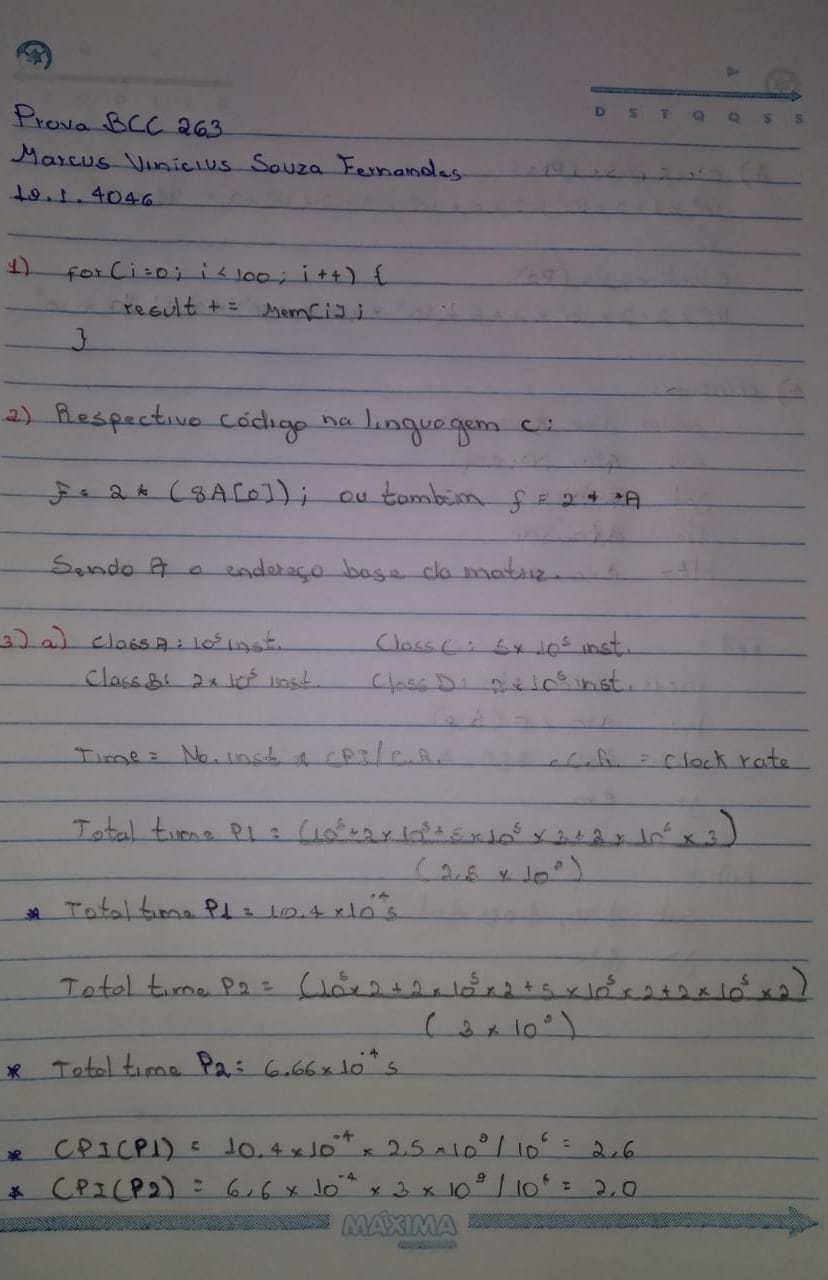 D S T Q Q S S
Prova BCC 263
Marcus Vinicius Souza Fernandes
19.1.4046
1) for(i=0; i<100; i++) {
result += Mem[i];
}
2) Respectivo código na linguagem c:
f = 2 * (&A[0]); ou também f = 2 * *A
Sendo A o endereço base da matriz.
3) a) Class A: 10⁵ inst. Class C: 5x 10⁵ inst.
Class B: 2x 10⁵ inst. Class D: 2x10⁵ inst.
Time = No. inst x CPI/C.R. C.R. = clock rate
Total time P1 = (10⁵+2x10⁵+5x10⁵ x 3+2x 10⁵ x 3)
(2.5 x 10⁹)
* Total time P1 = 10.4 x10⁻⁴s
Total time P2 = (10⁵x2+2x10⁵x2+5x10⁵x2+2x10⁵x2)
(3x10⁹)
* Total time P2 = 6.66x10⁻⁴s
* CPI(P1) = 10.4x10⁻⁴ x 2.5x10⁹/10⁶ = 2,6
* CPI(P2) = 6,6x 10⁻⁴ x 3x10⁹/10⁶ = 2,0
MÁXIMA